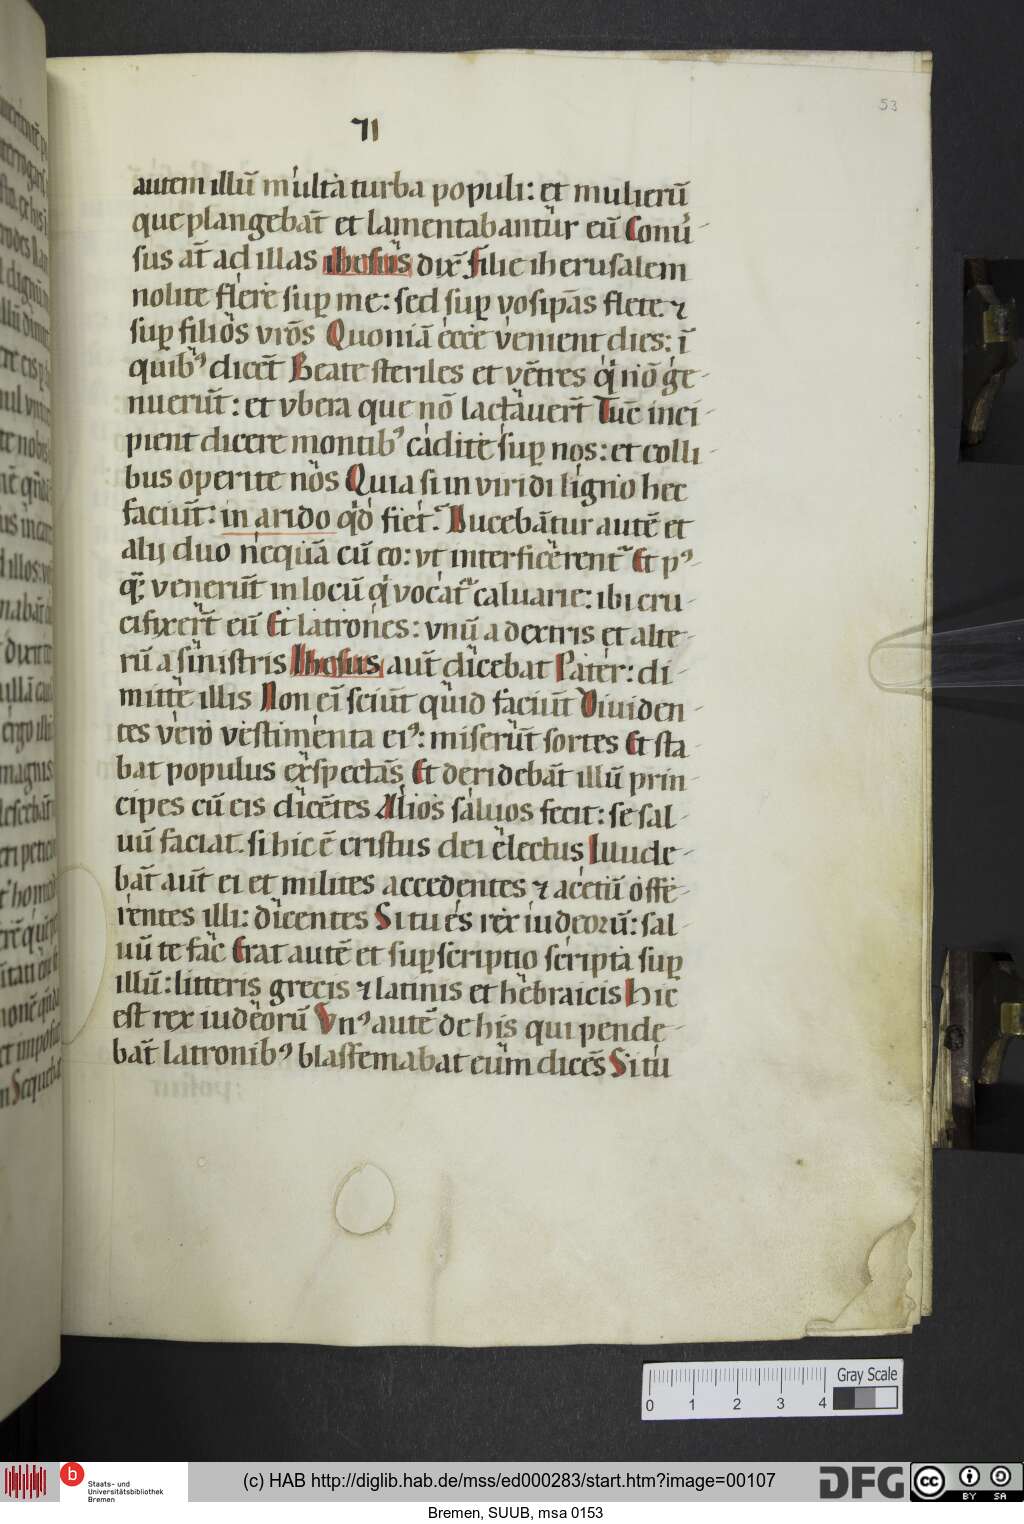 53
71
autem illū multa turba populi: et mulierū
que plangebāt et lamentabantur eū Conu̾
sus at̄ ad illas ihesus dix̄ filie iherusalem
nolite flere sup̱ me: sed sup̱ vosip̄as flete ⁊
sup̱ filios vr̄os Quoniā ecce venient dies: ī
quibꝰ dicēt Beate steriles et vētres q̇ nō ge-
nuerūt: et vbera que nō lactauerūt Tūc inci-
pient dicere montibꝰ cadite sup̱ nos: et colli-
bus operite nos Quia si in viridi ligno hec
faciūt: in arido qd̓ fiet. Ducebātur autē et
alij duo nequā cū eo: vt interficerent᷑ Et pꝰ-
qꝫ venerūt in locū q̇ vocat᷑ caluarie: ibi cru-
cifixer̄t eū Et latrones: vnū a dextris et alte-
rū a sinistris Ihesus aut̄ dicebat Pater: di-
mitte illis Non eī sciūt quid faciūt Diuiden-
tes vero vestimenta eiꝰ: miserūt sortes Et sta-
bat populus exspectās Et deridebāt illū prin-
cipes cū eis dicētes Alios saluos fecit: se sal-
uū faciat. si hic ē cristus dei electus Illude-
bāt aut̄ ei et milites accedentes ⁊ acetū offe-
rentes illi: dicentes Si tu es rex iudeorū: sal-
uū te fac Erat autē et sup̱scriptio scripta sup̱
illū: litteris grecis ⁊ latinis et hebraicis Hic
est rex iudeorū Vnꝰ autē de his qui pende-
bāt latronibꝰ blasfemabat eum dicēs Si tu
Gray Scale
0 1 2 3 4
b
Staats- und
Universitätsbibliothek
Bremen
(c) HAB http://diglib.hab.de/mss/ed000283/start.htm?image=00107
DFG
cc BY SA
Bremen, SUUB, msa 0153